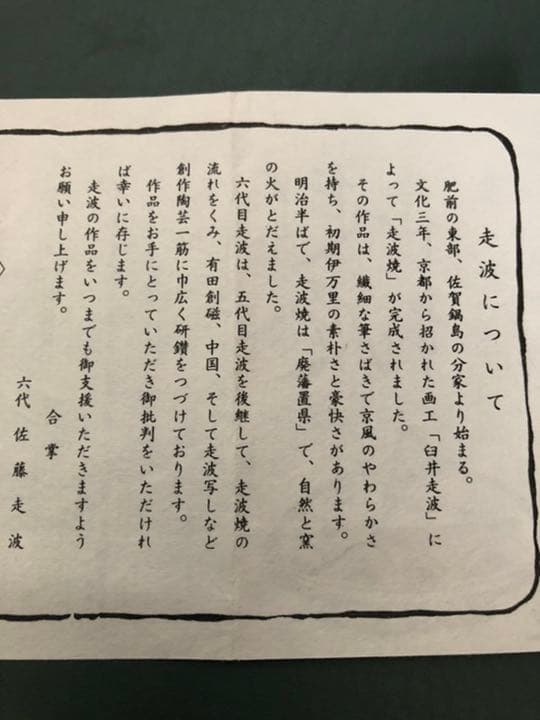 走波について
肥前の東部、佐賀鍋島の分家より始まる。
文化三年、京都から招かれた画工「臼井走波」に
よって「走波焼」が完成されました。
その作品は、繊細な筆さばきで京風のやわらかさ
を持ち、初期伊万里の素朴さと豪快さがあります。
明治半ばで、走波焼は「廃藩置県」で、自然と窯
の火がとだえました。
六代目走波は、五代目走波を後継して、走波焼の
流れをくみ、有田創磁、中国、そして走波写しなど
創作陶芸一筋に巾広く研鑽をつづけております。
作品をお手にとっていただき御批判をいただけれ
ば幸いに存じます。
走波の作品をいつまでも御支援いただきますよう
お願い申し上げます。
合掌
六代 佐藤走波